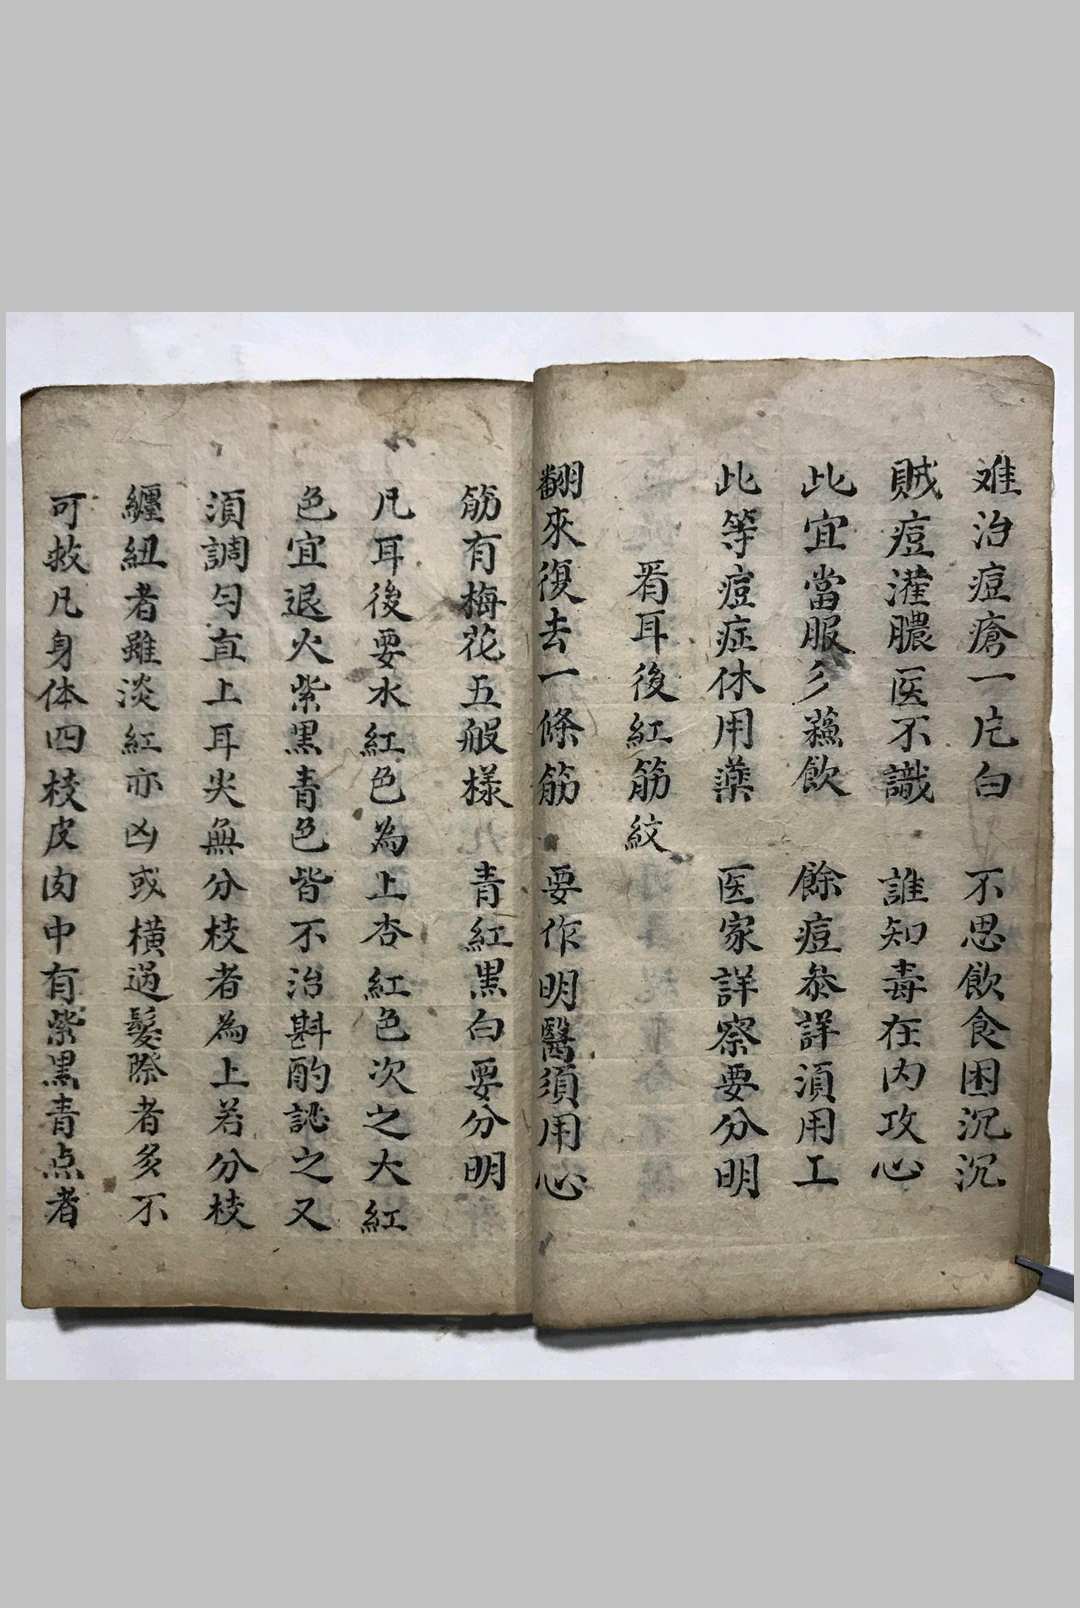 难治痘瘡一片白　不思飲食困沉沉
賊痘灌膿医不識　誰知毒在内攻心
此宜當服彡蘓飲　餘痘叅詳湏用工
此等痘症休用薬　医家詳察要分明
看耳後紅筋紋
翻來復去一條筋　要作明醫須用心
筋有梅花五般樣　青紅黑白要分明
凡耳後要水紅色為上杏紅色次之大紅
色宜退火紫黑青色皆不治斟酌誌之又
湏調匀直上耳尖無分枝者為上若分枝
纏紐者雖淡紅亦凶或橫過髮際者多不
可救凡身体四枝皮肉中有紫黑青点者